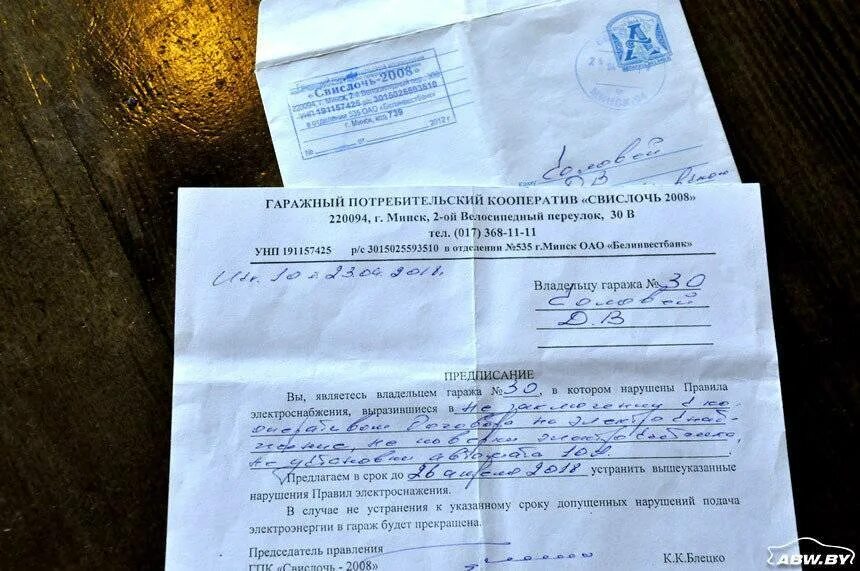 «Свислочь-2008»
220094, г. Минск, 2-й Велосипедный переулок, 30В
УНП 191157425 р/с 3015025593510
в отделении 535 ОАО «Белинвестбанк»
г. Минск, код 739
№ от 2012 г.
А
МИНСК
Кому
Соловей
Д В
ГАРАЖНЫЙ ПОТРЕБИТЕЛЬСКИЙ КООПЕРАТИВ «СВИСЛОЧЬ 2008»
220094, г. Минск, 2-ой Велосипедный переулок, 30 В
тел. (017) 368-11-11
УНП 191157425 р/с 3015025593510 в отделении №535 г.Минск ОАО «Белинвестбанк»
Исх. 10 23.04.2018г.
Владельцу гаража № 30
Соловей
Д.В
ПРЕДПИСАНИЕ
Вы, являетесь владельцем гаража № 30, в котором нарушены Правила
электроснабжения, выразившиеся в не заключении с ко-
оперативом Договора на электроснаб-
жение, не поверки электросчетчика,
не установки автомата 10А.
Предлагаем в срок до 26 апреля 2018 устранить вышеуказанные
нарушения Правил электроснажения.
В случае не устранения к указанному сроку допущенных нарушений подача
электроэнергии в гараж будет прекращена.
Председатель правления
ГПК «Свислочь - 2008» К.К.Блецко
ABW.BY